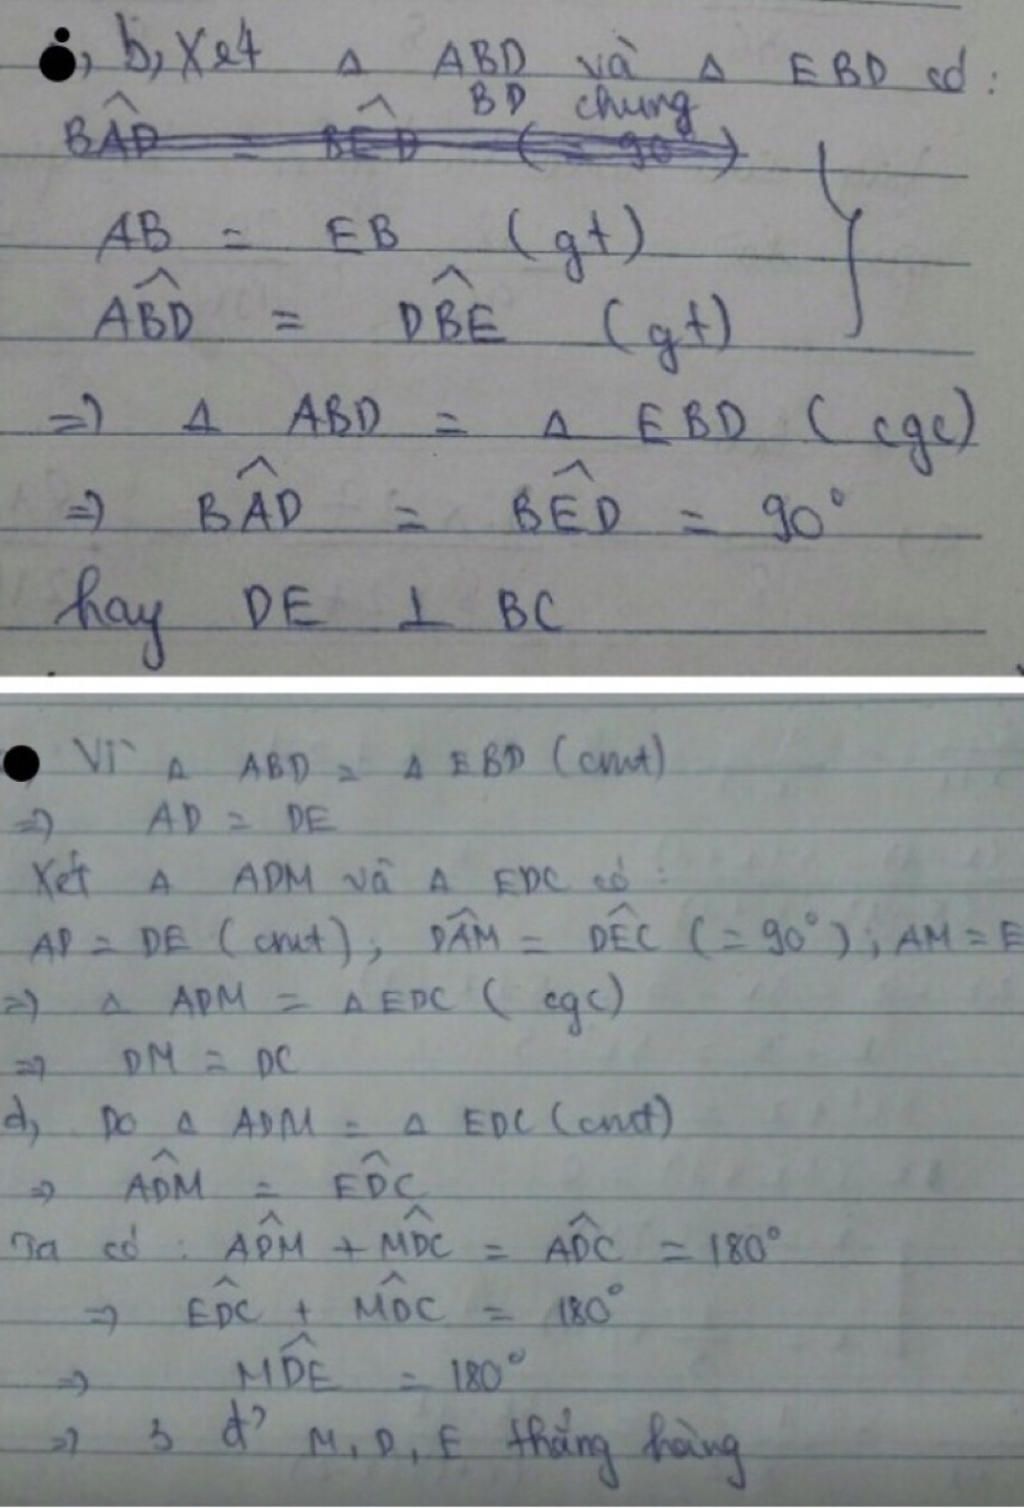 b, Xét Δ ABD và Δ EBD có:
BD chung
B\widehat{A}D = B\widehat{E}D (= 90°)
AB = EB (gt)
A\widehat{B}D = D\widehat{B}E (gt)
=) Δ ABD = Δ EBD ( cgc)
=) B\widehat{A}D = B\widehat{E}D = 90°
hay DE ⊥ BC
Vì Δ ABD = Δ EBD (cmt)
=) AD = DE
Xét Δ ADM và Δ EDC có :
AD = DE ( cmt), D\widehat{A}M = D\widehat{E}C ( = 90° ) ; AM = E
=) Δ ADM = Δ EDC ( cgc)
=) DM = DC
d, Do Δ ADM = Δ EDC (cmt)
=) A\widehat{D}M = E\widehat{D}C
Ta có : A\widehat{D}M + M\widehat{D}C = A\widehat{D}C = 180°
=) E\widehat{D}C + M\widehat{D}C = 180°
=) M\widehat{D}E = 180°
=) 3 đ' M, D, E thẳng hàng